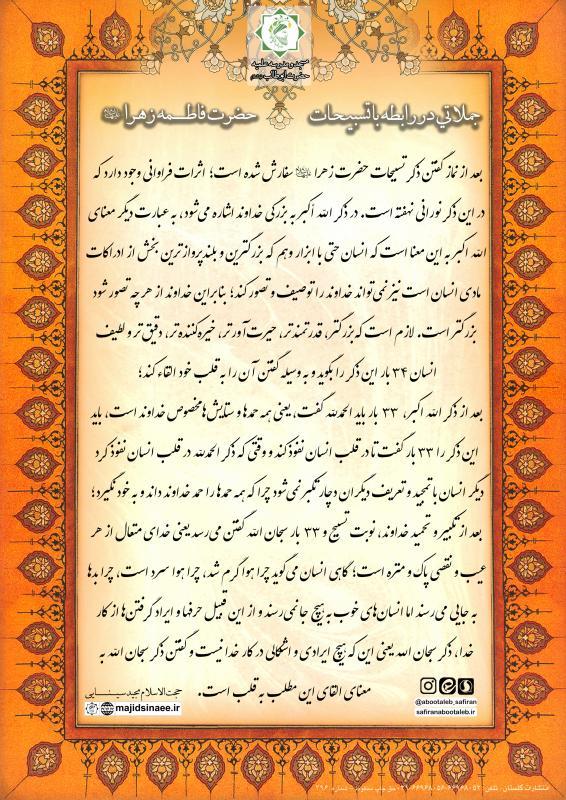 مسجد و مدرسه علمیه
حضرت ابوطالب
جملاتی در رابطه با تسبیحات حضرت فاطمه زهرا
بعد از نماز گفتن ذکر تسبیحات حضرت زهرا سفارش شده است؛ اثرات فراوانی وجود دارد که
در این ذکر نورانی نهفته است. در ذکر الله أکبر به بزرگی خداوند اشاره می‌شود، به عبارت دیگر معنای
الله اکبر به این معنا است که انسان حتی با ابزار وهم که بزرگترین و بلندپروازترین بخش از ادراکات
مادی انسان است نیز نمی‌تواند خداوند را توصیف و تصور کند؛ بنابراین خداوند از هر چه تصور شود
بزرگتر است. لازم است که بزرگتر، قدرتمندتر، حیرت‌آورتر، خیره‌کننده‌تر، دقیق‌تر و لطیف
انسان ۳۴ بار این ذکر را بگوید و به وسیله گفتن آن را به قلب خود القاء کند؛
بعد از ذکر الله اکبر، ۳۳ بار باید الحمدلله گفت، یعنی همه حمدها و ستایش‌ها مخصوص خداوند است، باید
این ذکر را ۳۳ بار گفت تا در قلب انسان نفوذ کند و وقتی که ذکر الحمدلله در قلب انسان نفوذ کرد
دیگر انسان با تمجید و تعریف دیگران دچار تکبر نمی‌شود چرا که همه حمدها را حمد خداوند داند و به خود نگیرد؛
بعد از تکبیر و تحمید خداوند، نوبت تسبیح و ۳۳ بار سبحان الله گفتن می‌رسد یعنی خدای متعال از هر
عیب و نقصی پاک و منزه است؛ گاهی انسان می‌گوید چرا هوا گرم شد، چرا هوا سرد است، چرا بدها
به جایی می‌رسند اما انسان‌های خوب به هیچ جا نمی‌رسند و از این قبیل حرفها و ایراد گرفتن‌ها از کار
خدا، ذکر سبحان الله یعنی این که هیچ ایرادی و اشکالی در کار خدا نیست و گفتن ذکر سبحان الله به
معنای القای این مطلب به قلب است.
حجت الاسلام مجید سینایی
majidsinaee.ir
@abootaleb_safiran
safiranabootaleb.ir